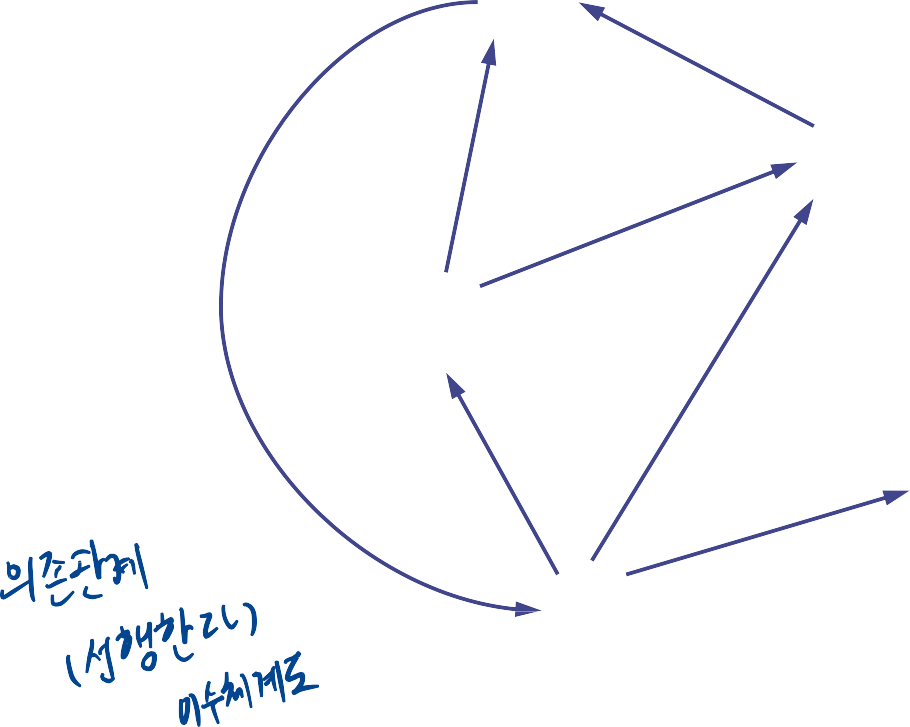 의존관계
(선행한다)
이수체계도